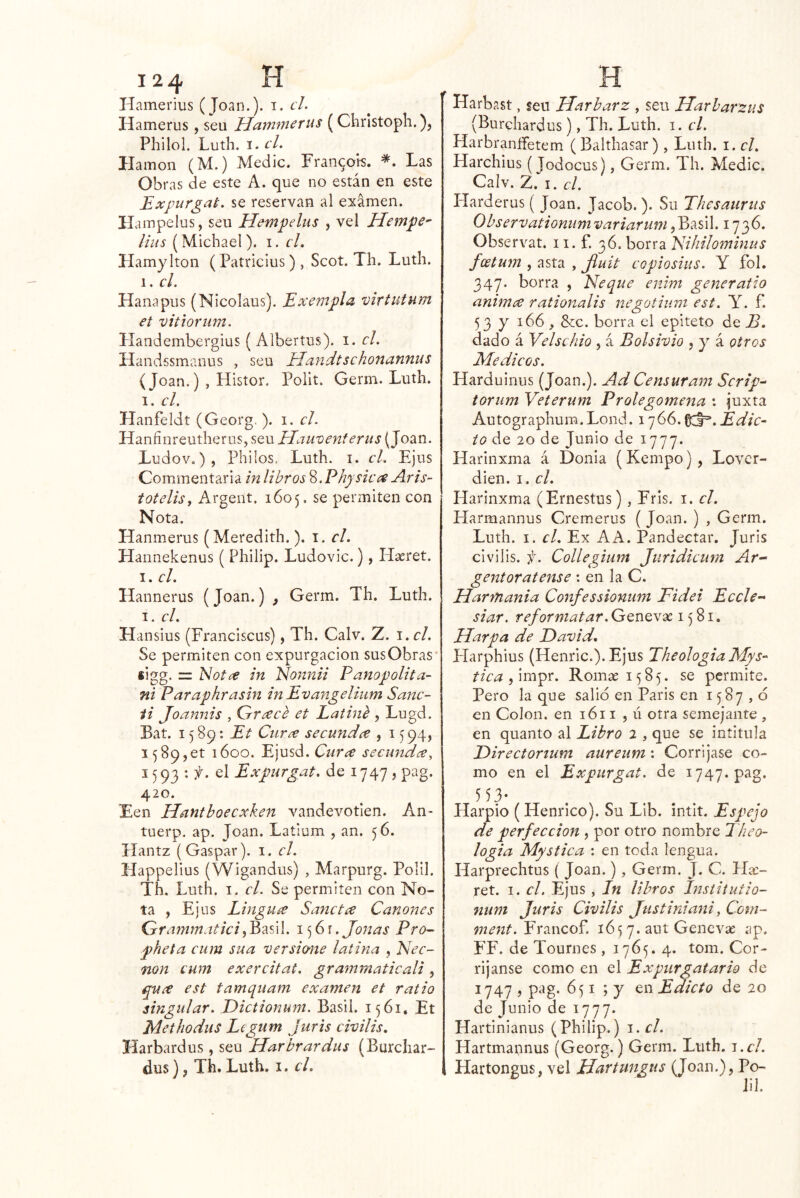 124 H
Hamerius (Joan.). 1. cl.
Hamerus , seu Hammerus ( Christoph.),
Philol. Luth. 1. cl.
Hamon (M.) Medic. François. *. Las
Obras de este A. que no están en este
Expurgat. se reservan al exâmen.
Hampelus, seu Hempelus , vel Hempe-
lius ( Michael ). 1. cl.
Hamylton ( Patricius ) , Scot. Th. Luth.
1. cl.
Hanapus (Nicolaus). Exempla virtutum
et vitiorum.
Handembergius ( Albertus). 1. cl.
Handssmanus , seu Handtschonannus
(Joan.) , Histor. Polit. Germ. Luth.
1. cl.
Hanfeldt (Georg. ). 1. cl.
Hanfinreutherus, seu Hauventerus (Joan.
Ludov.) , Philos. Luth. 1. cl. Ejus
Commentaria in libros 8. Physicæ Aris-
totelis, Argent. 1605. se permiten con
Nota.
Hanmerus ( Meredith. ). 1. cl.
Hannekenus ( Philip. Ludovic. ) , Hæret.
1. cl.
Hannerus (Joan.) , Germ. Th. Luth.
1. cl.
Hansius (Franciscus) , Th. Calv. Z. 1. cl.
Se permiten con expurgacion sus Obras
sigg. = Notæ in Nonnii Panopolita-
ni Paraphrasin in Evangelium Sanc-
ti Joannis , Græcè et Latinè , Lugd.
Bat. 1589: Et Curæ secundæ , 1594,
1589, et 1600. Ejusd. Curæ secundæ,
1593 : ℣. el Expurgat. de 1747, pag.
420.
Een Hantboecxken vandevotien. An-
tuerp. ap. Joan. Latium , an. 56.
Hantz ( Gaspar ). 1. cl.
Happelius (Wigandus) , Marpurg. Polil.
Th. Luth. 1. cl. Se permiten con No-
ta , Ejus Linguæ Sanctæ Canones
Grammatici, Basil. 1561. Jonas Pro-
pheta cum sua versione latina , Nec-
non cum exercitat. grammaticali ,
quæ est tamquam examen et ratio
singular. Dictionum. Basil. 1561. Et
Methodus Legum Juris civilis.
Harbardus , seu Harbrardus (Burchar-
dus ) , Th. Luth. 1. cl.
H
Harbast , seu Harbarz , seu Harbarzus
(Burchardus ) , Th. Luth. 1. cl.
Harbranffetem ( Balthasar ) , Luth. 1. cl.
Harchius ( Jodocus) , Germ. Th. Medic.
Calv. Z. 1. cl.
Harderus ( Joan. Jacob. ). Su Thesaurus
Observationum variarum , Basil. 1736.
Observat. 11. f. 36. borra Nihilominus
fœtum , asta , fluit copiosius. Y fol.
347. borra , Neque enim generatio
animæ rationalis negotium est. Y. f.
53 y 166 , &c. borra el epiteto de B.
dado á Velschio , á Bolsivio , y á otros
Medicos.
Harduinus (Joan.). Ad Censuram Scrip-
torum Veterum Prolegomena : juxta
Autographum. Lond. 1766. ☞. Edic-
to de 20 de Junio de 1777.
Harinxma á Donia ( Kempo ) , Lover-
dien. 1. cl.
Harinxma ( Ernestus ) , Fris. 1. cl.
Harmannus Cremerus ( Joan. ) , Germ.
Luth. 1. cl. Ex AA. Pandectar. Juris
civilis. ℣. Collegium Juridicum Ar-
gentoratense : en la C.
Harmania Confessionum Fidei Eccle-
siar. reformatar. Genevæ 1581.
Harpa de David.
Harphius (Henric.). Ejus Theologia Mys-
tica , impr. Romæ 1585. se permite.
Pero la que salió en Paris en 1587 , ó
en Colon. en 1611 , ú otra semejante ,
en quanto al Libro 2 , que se intitula
Directorium aureum : Corrijase co-
mo en el Expurgat. de 1747. pag.
553.
Harpio ( Henrico). Su Lib. intit. Espejo
de perfeccion , por otro nombre Theo-
logia Mystica : en toda lengua.
Harprechtus ( Joan. ) , Germ. J. C. Hæ-
ret. 1. cl. Ejus , In libros Institutio-
num Juris Civilis Justiniani, Com-
ment. Francof. 1657. aut Genevæ ap.
FF. de Tournes , 1765. 4. tom. Cor-
rijanse como en el Expurgatario de
1747 , pag. 651 ; y en Edicto de 20
de Junio de 1777.
Hartinianus (Philip.) 1. cl.
Hartmannus (Georg. ) Germ. Luth. 1. cl.
Hartongus, vel Hartungus (Joan.), Po-
lil.